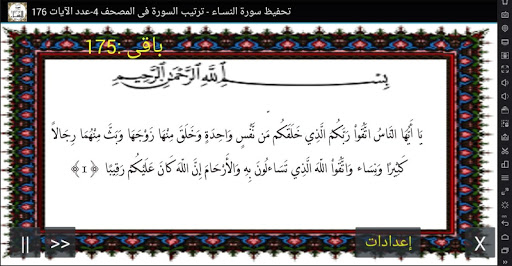 تحفيظ سورة النساء - ترتيب السورة فى المصحف 4-عدد الآيات 176
باقى :175
بِسْمِ اللَّهِ الرَّحْمَٰنِ الرَّحِيمِ
يَا أَيُّهَا النَّاسُ اتَّقُواْ رَبَّكُمُ الَّذِي خَلَقَكُم مِّن نَّفْسٍ وَاحِدَةٍ وَخَلَقَ مِنْهَا زَوْجَهَا وَبَثَّ مِنْهُمَا رِجَالاً
كَثِيرًا وَنِسَاء وَاتَّقُواْ اللّهَ الَّذِي تَسَاءلُونَ بِهِ وَالأَرْحَامَ إِنَّ اللّهَ كَانَ عَلَيْكُمْ رَقِيبًا ﴿١﴾
|| >> إعدادات X